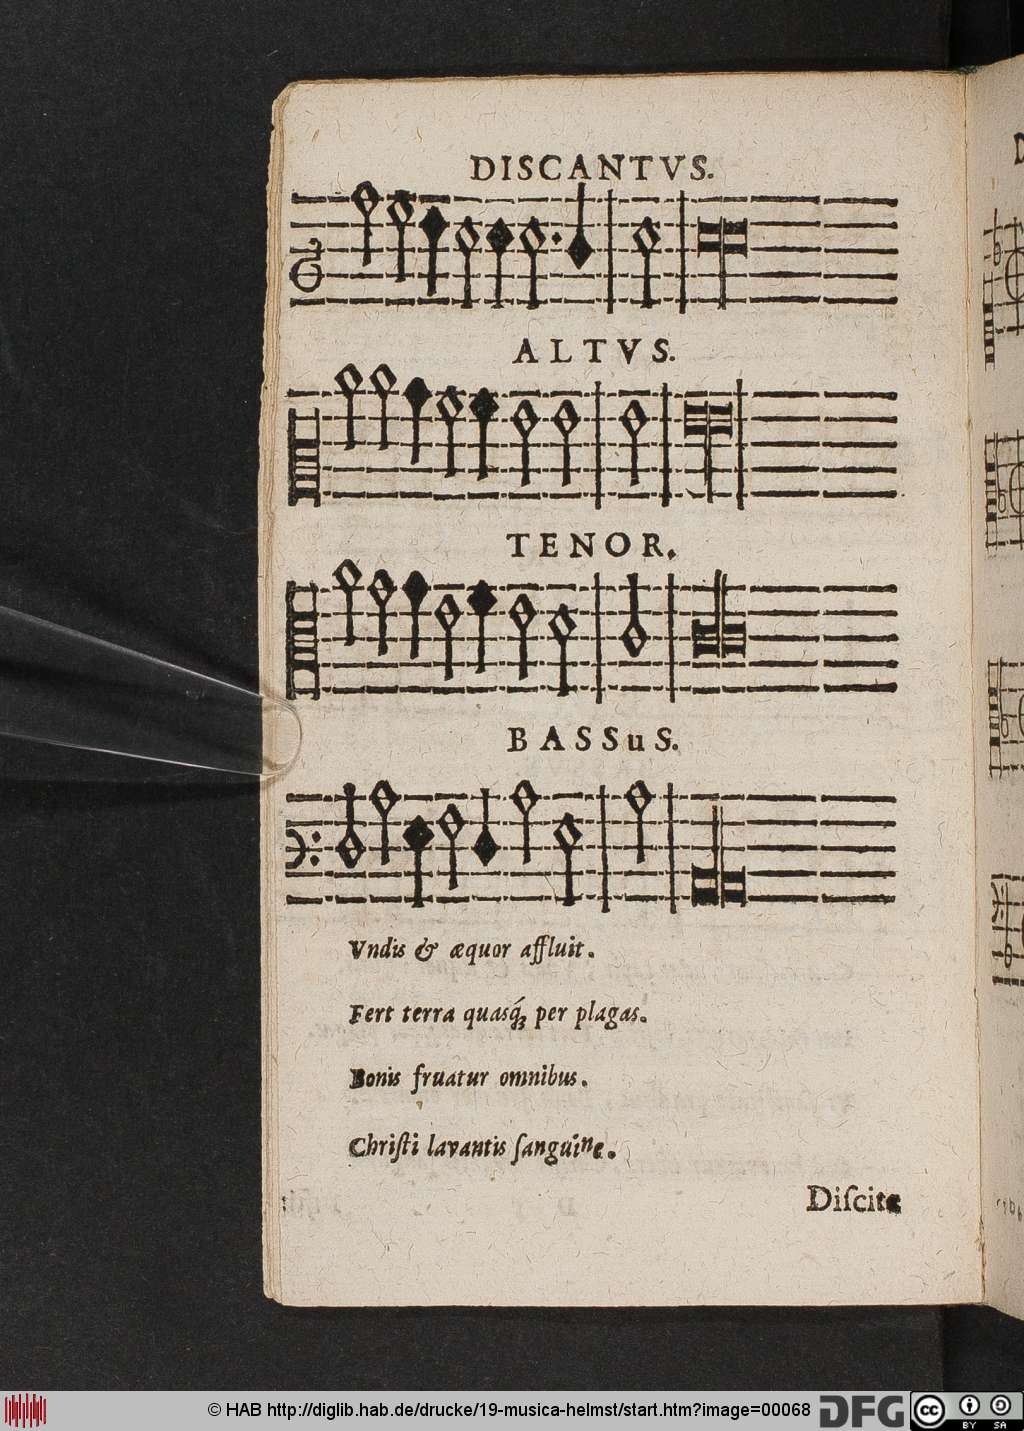 DISCANTVS.
ALTVS.
TENOR.
BASSuS.
Vndis & æquor affluit.
Fert terra quasq́ꝫ per plagas.
Bonis fruatur omnibus.
Chriſti lavantis ſanguine.
Diſcite
© HAB http://diglib.hab.de/drucke/19-musica-helmst/start.htm?image=00068
DFG
cc
BY SA